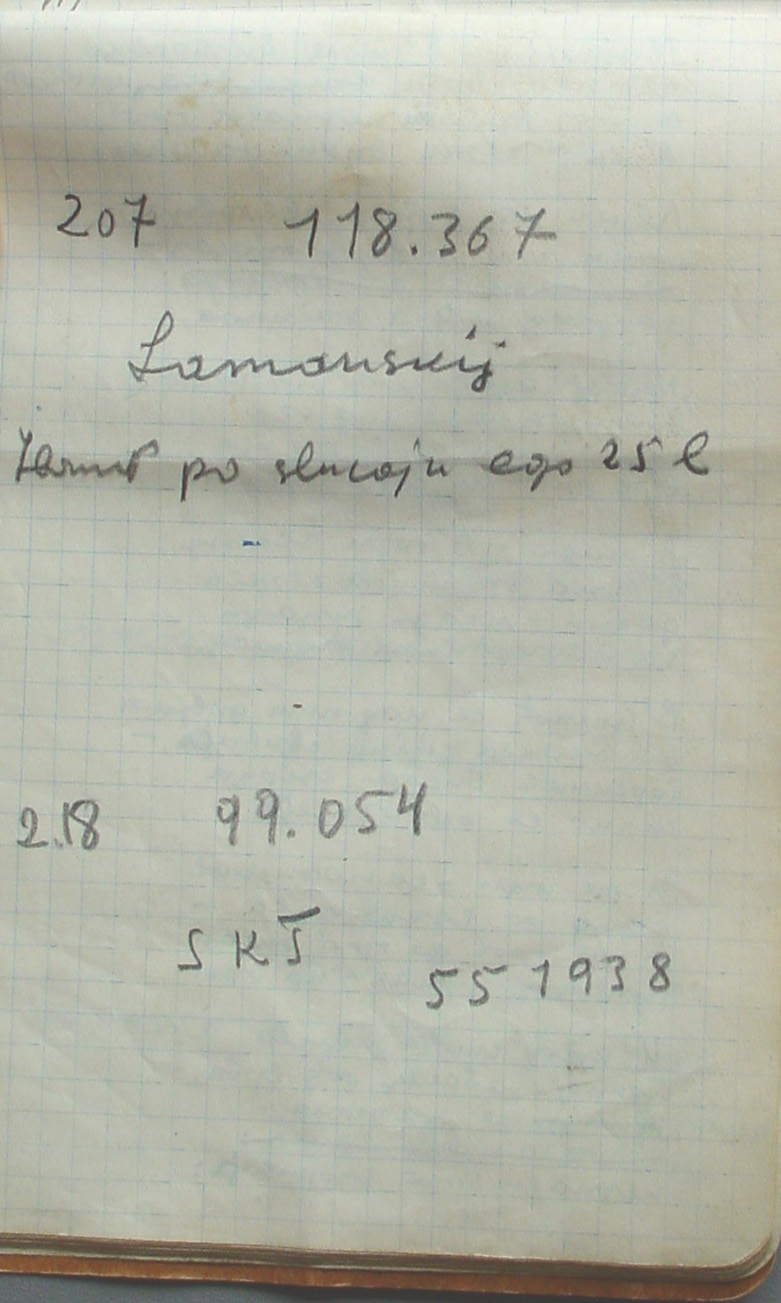 207 118.367
Lamanskij
po slucaju ego 25 l
2.18 99.054
S K Š
5 5 1938